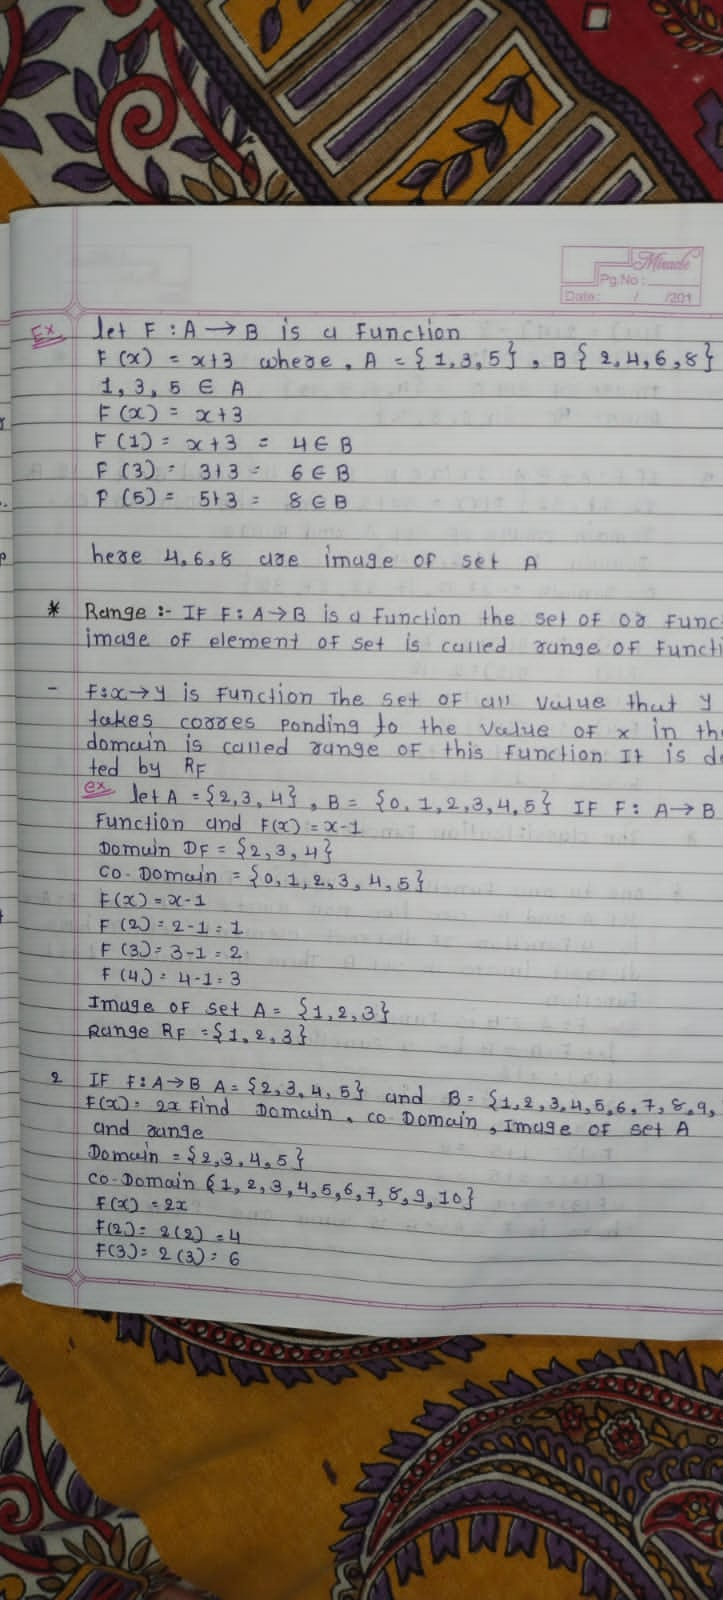 Miracle
Pg.No:
Date: / /201
Ex let F : A → B is a Function
F(x) = x+3 where, A = {1,3,5}, B{2,4,6,8}
1, 3, 5 ∈ A
F(x) = x+3
F(1) = x+3 = 4 ∈ B
F(3) = 3+3 = 6 ∈ B
F(5) = 5+3 = 8 ∈ B
here 4,6,8 are image of set A
* Range :- IF F: A→B is a Function the set of or Func
image of element of set is called range of Functi
- F:x→y is Function The set of all value that y
takes corres ponding to the value of x in the
domain is called range of this function It is de
ted by RF
ex let A = {2,3,4}, B = {0,1,2,3,4,5} IF F: A→B
Function and F(x) = x-1
Domain DF = {2,3,4}
co-Domain = {0,1,2,3,4,5}
F(x) = x-1
F(2) = 2-1 = 1
F(3) = 3-1 = 2
F(4) = 4-1 = 3
Image of set A = {1,2,3}
Range RF = {1,2,3}
2 IF F:A→B A = {2,3,4,5} and B = {1,2,3,4,5,6,7,8,9,
F(x) = 2x Find Domain, co Domain, Image of set A
and range
Domain = {2,3,4,5}
co-Domain {1,2,3,4,5,6,7,8,9,10}
F(x) = 2x
F(2) = 2(2) = 4
F(3) = 2(3) = 6